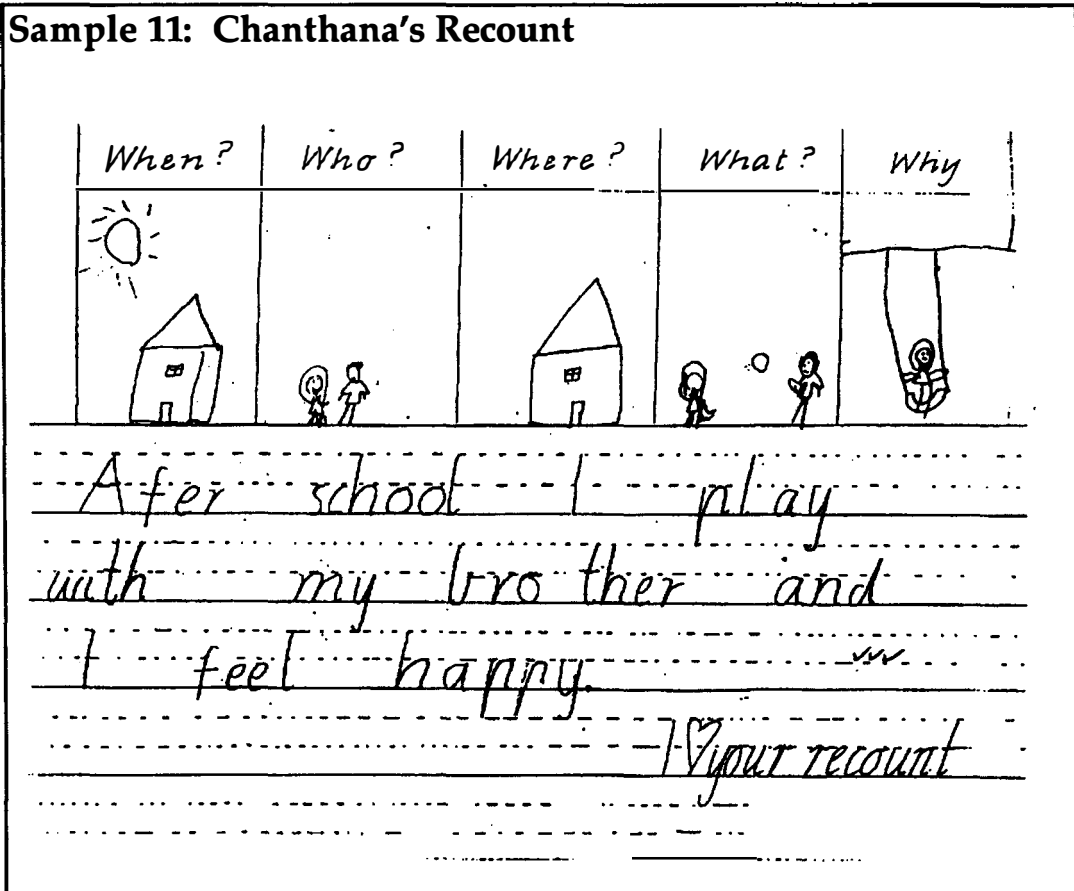 Sample 11: Chanthana's Recount
When? Who? Where? What? Why
Afer school I play
with my brother and
I feel happy.
I ♡ your recount